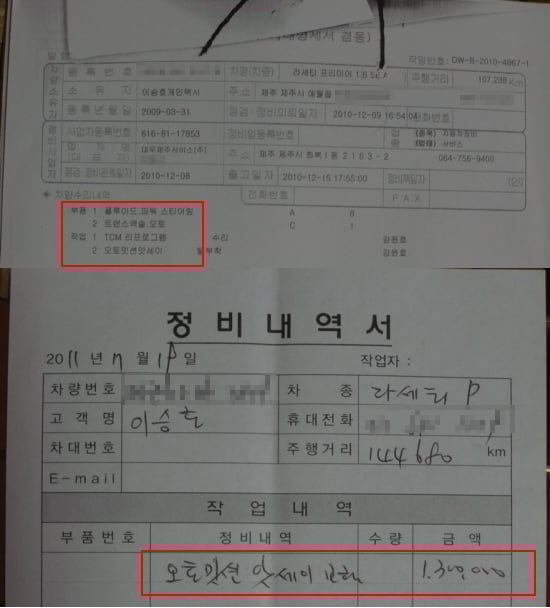 내역서 겸용)
작명번호: DW-B-2010-4867-1
등록번호 차명(차종) 라세티 프리미어 1.6 주행거리 107,238 Km
소유자 이승호개인택시 주소 제주 제주시 애월읍
등록년월일 2009-03-31 점검·정비의뢰일자 2010-12-09 16:54:04 전화번호
사업자등록번호 616-81-17853 정비업등록번호 업 (종목) 자동차정비
업체명 대우제주서비스(주) 종 (업태) 서비스
(대표자) 주소 제주 제주시 2163-2 064-756-9400
점검·정비완료일자 2010-12-08 출고일자 2010-12-15 17:55:00 정비책임자 (인)
차량수리내역 전화번호 FAX
부품 1 플루이드,파워 스티어링 A 8
2 트랜스액슬,오토 C 1
작업 1 TCM 리프로그램 수리 강원호
2 오토밋션앗세이 탈부착 강원호
정비내역서
2011년 7월 1 일 작업자:
차량번호 차종 라세티 P
고객명 이승호 휴대전화
차대번호 주행거리 144680 km
E-mail
작업내역
부품번호 정비내역 수량 금액
오토밋션 앗세이 교환 1,300,000